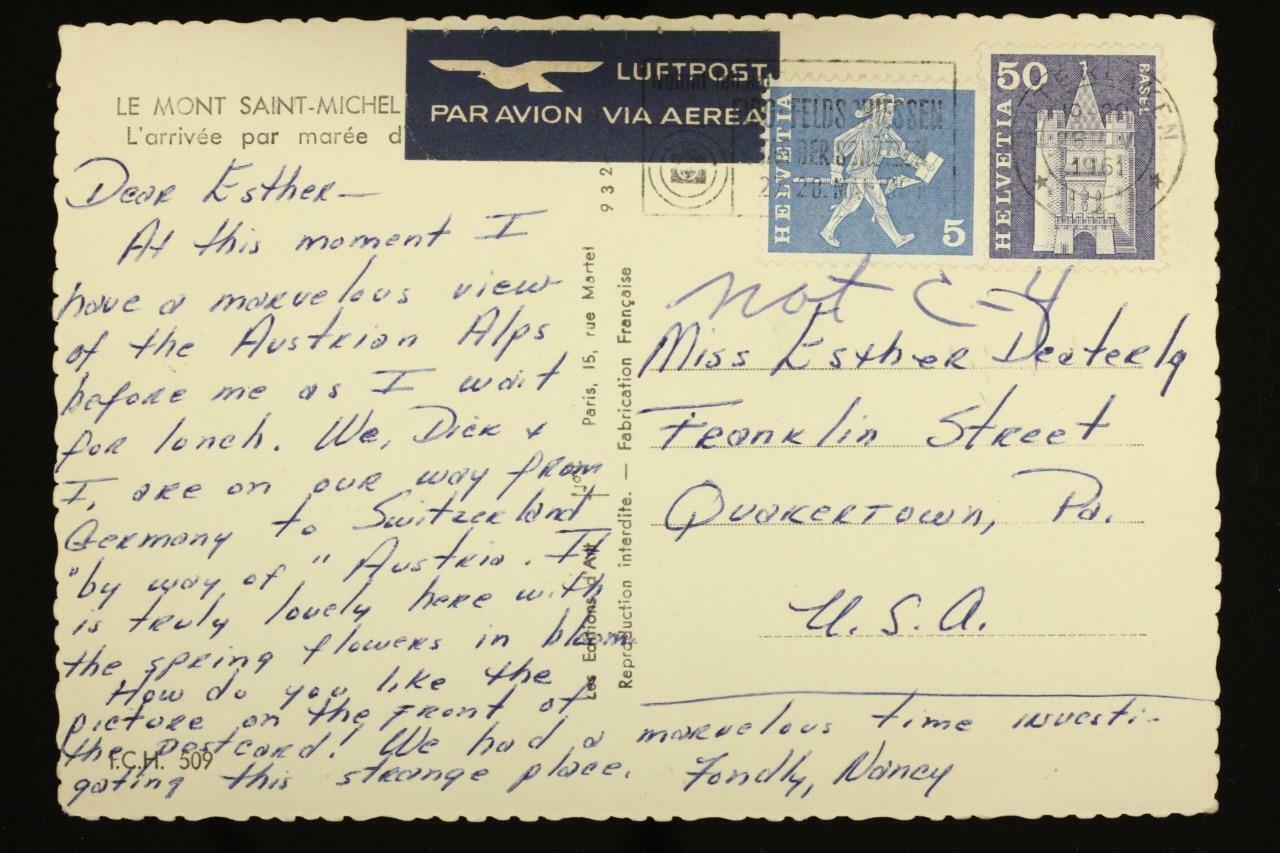 LE MONT SAINT-MICHEL
L'arrivée par marée d
LUFTPOST
PAR AVION VIA AEREA
HELVETIA
5
50
HELVETIA
BASEL
1961
Dear Esther—
At this moment I
have a marvelous view
of the Austrian Alps
before me as I wait
for lunch. We, Dick &
I, are on our way from
Germany to Switzerland
"by way of" Austria. It
is truly lovely here with
the spring flowers in bloom.
How do you like the
picture on the front of
the postcard! We had a marvelous time investi-
gating this strange place. Fondly, Nancy
I.C.H. 509
932
Les Editions d'Art Paris, 15, rue Martel
Reproduction interdite. — Fabrication Française
not C-4
Miss Esther Deaterly
Franklin Street
Quakertown, Pa.
U.S.A.